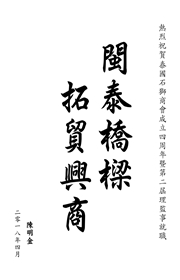 熱烈祝賀泰國石獅商會成立四周年暨第二屆理監事就職
閩泰橋樑
拓貿興商
陳明金
二零一八年四月